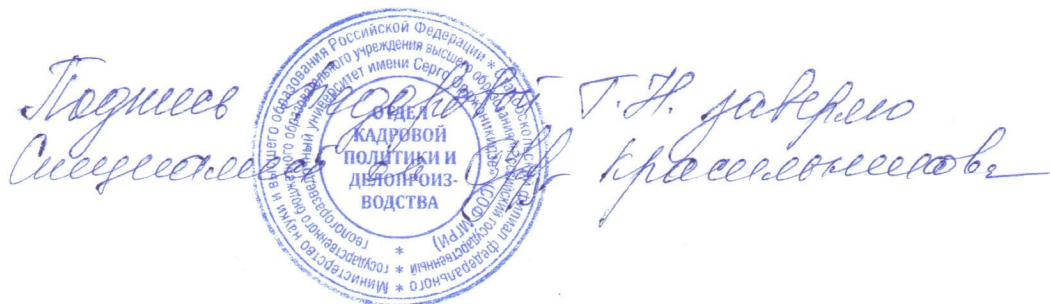 Подпись Т.Н. заверяю
Специалист Красильникова
Министерство науки и высшего образования Российской Федерации * Старооскольский филиал федерального *
государственного бюджетного образовательного учреждения высшего образования «Российский государственный
геологоразведочный университет имени Серго Орджоникидзе» (СОФ МГРИ)
*
ОТДЕЛ
КАДРОВОЙ
ПОЛИТИКИ И
ДЕЛОПРОИЗ-
ВОДСТВА